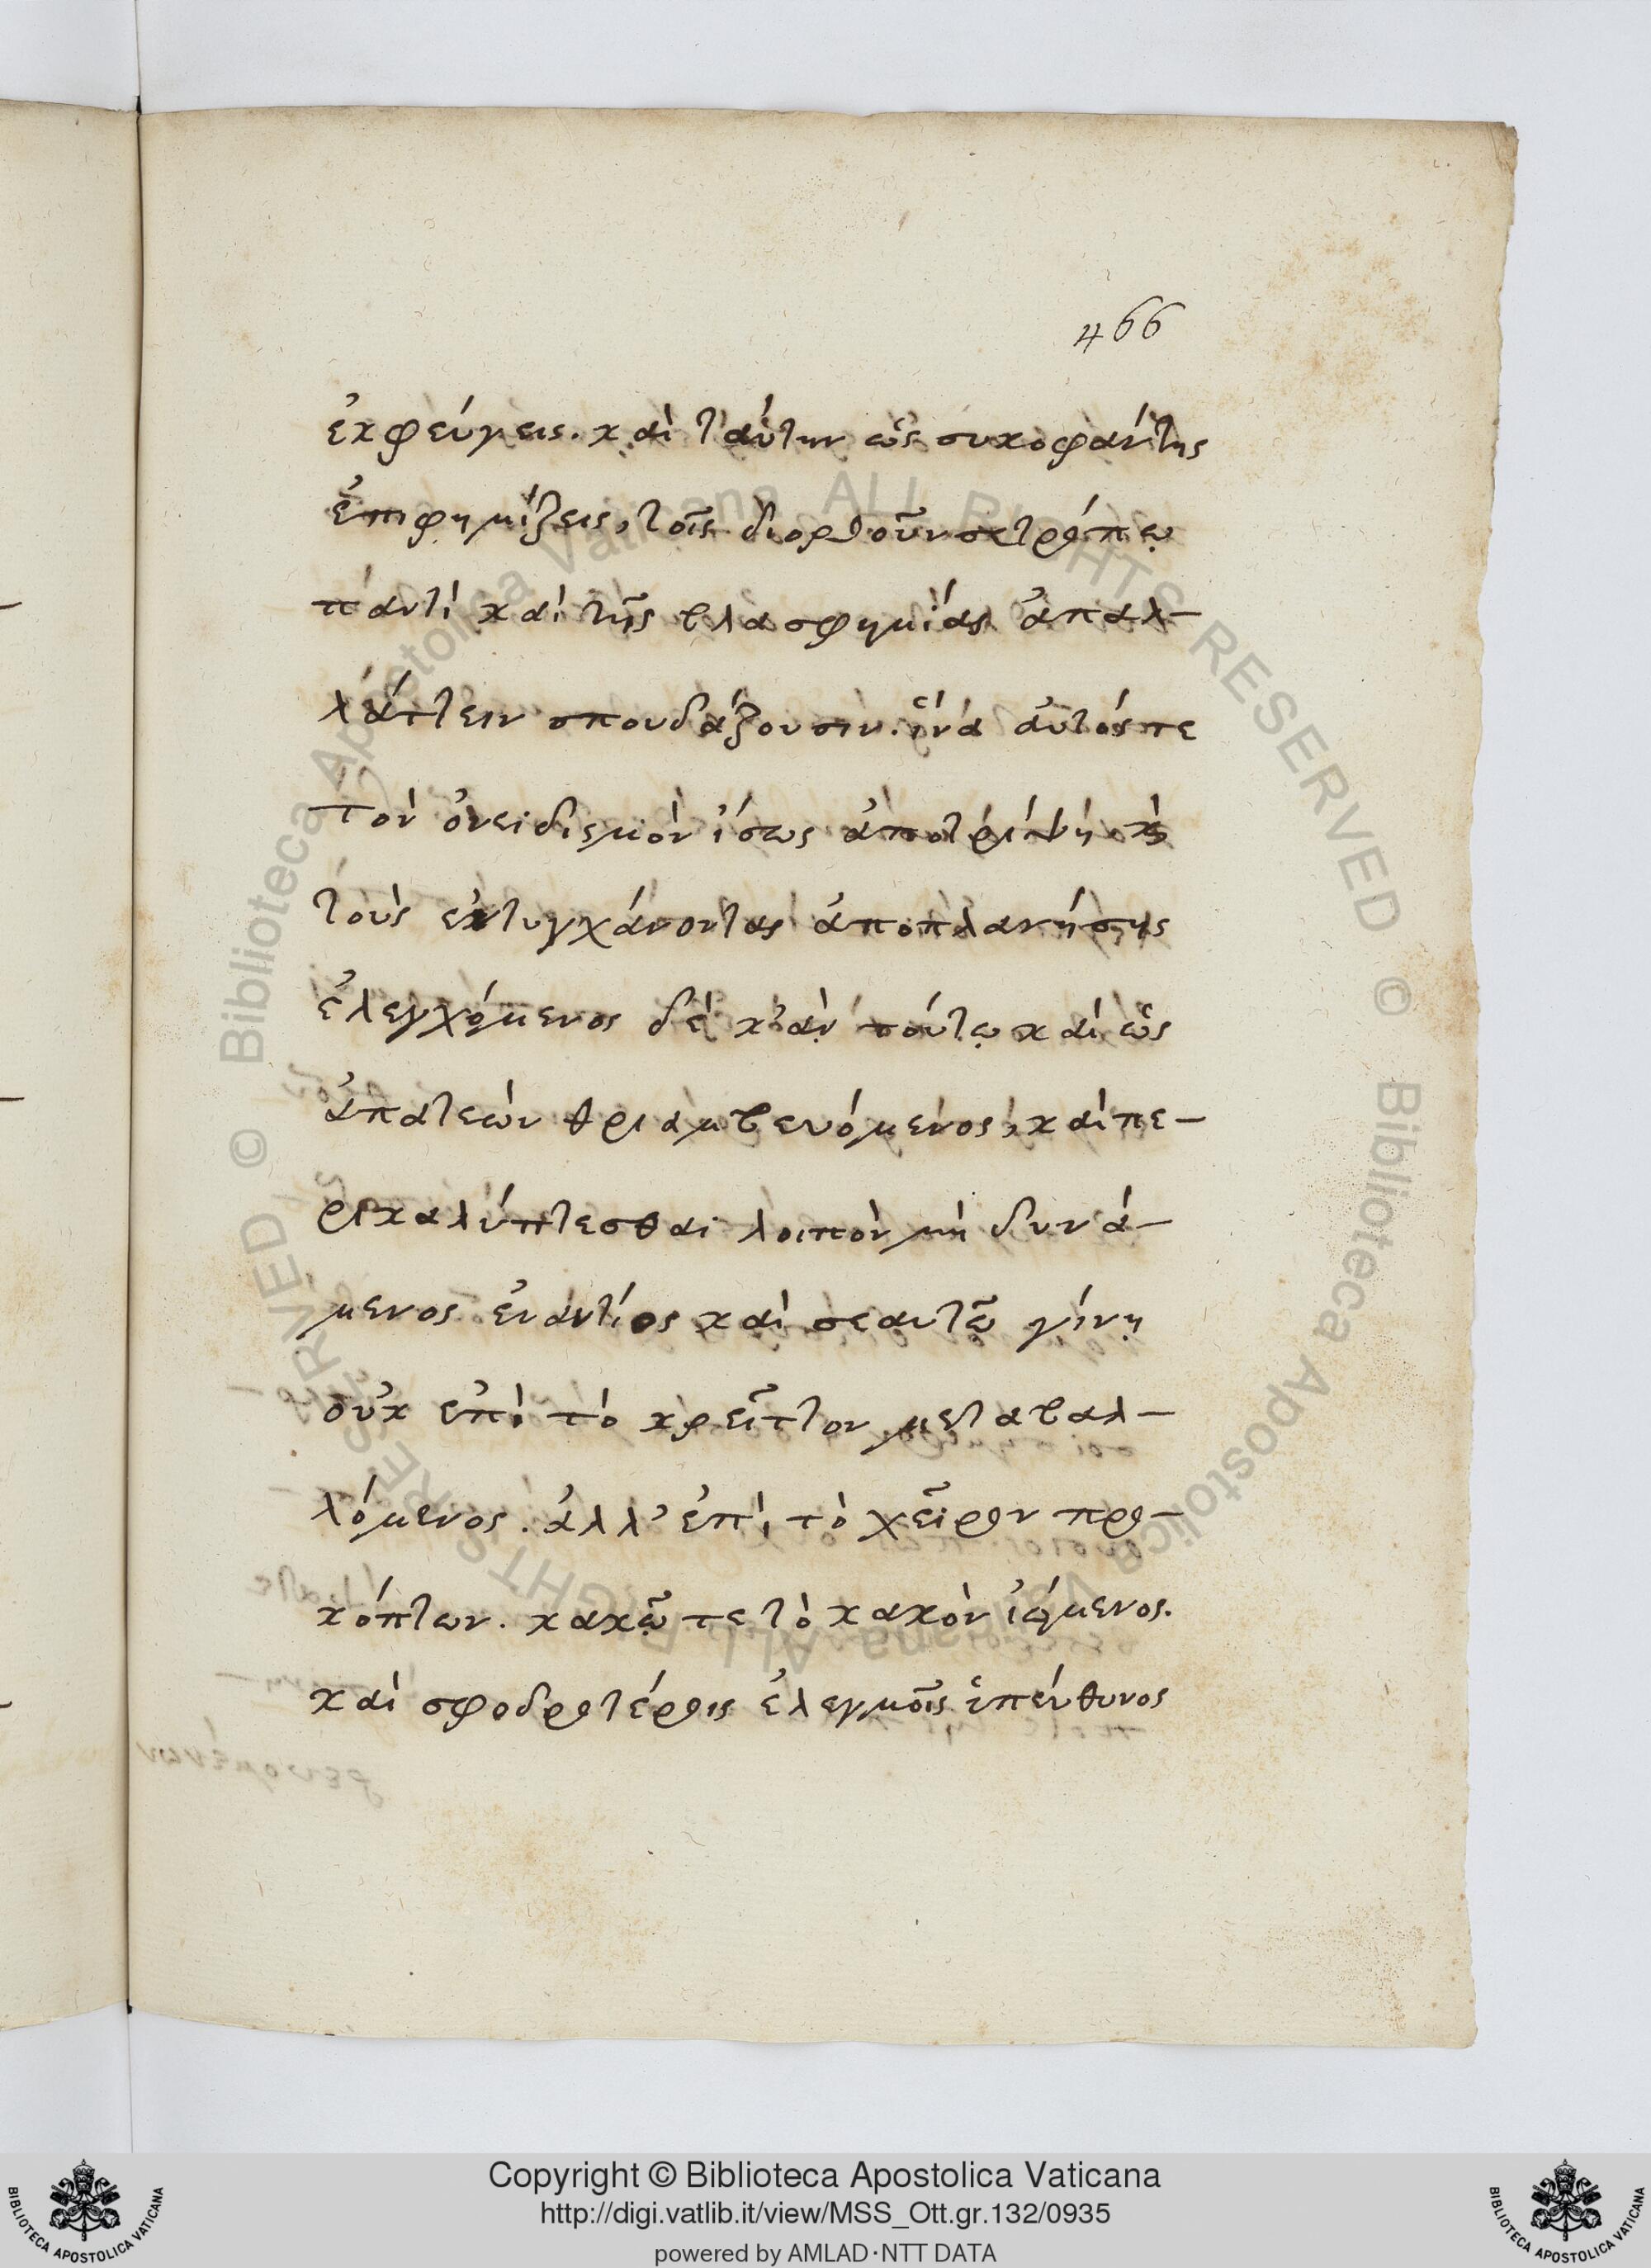 466
ἐκφεύγεις. καὶ ταύτην ὡς συκοφάντης
ἐπιφημίζεις, τοῖς διορθοῦν σε τρόπῳ
παντὶ καὶ τῆς βλασφημίας ἀπαλ-
λάττειν σπουδάζουσιν. ἵνα αὐτός τε
τὸν ὀνειδισμὸν ἴσως ἀποτρίψῃ καὶ
τοὺς ἐντυγχάνοντας ἀποπλανήσῃς
ἐλεγχόμενος δὲ κἀν τούτῳ καὶ ὡς
ἀπατεὼν θριαμβευόμενος, καὶ πε-
ρικαλύπτεσθαι λοιπὸν μὴ δυνά-
μενος ἐναντίος καὶ σεαυτῷ γίνῃ
οὐκ ἐπὶ τὸ κρεῖττον μεταβαλ-
λόμενος. ἀλλ' ἐπὶ τὸ χεῖρον προ-
κόπτων. κακῷ τε τὸ κακὸν ἰώμενος.
καὶ σφοδροτέροις ἐλεγμοῖς ὑπεύθυνος
Copyright © Biblioteca Apostolica Vaticana
http://digi.vatlib.it/view/MSS_Ott.gr.132/0935
powered by AMLAD·NTT DATA
BIBLIOTECA APOSTOLICA VATICANA
BIBLIOTECA APOSTOLICA VATICANA
© Biblioteca Apostolica Vaticana ALL RIGHTS RESERVED
© Biblioteca Apostolica Vaticana ALL RIGHTS RESERVED